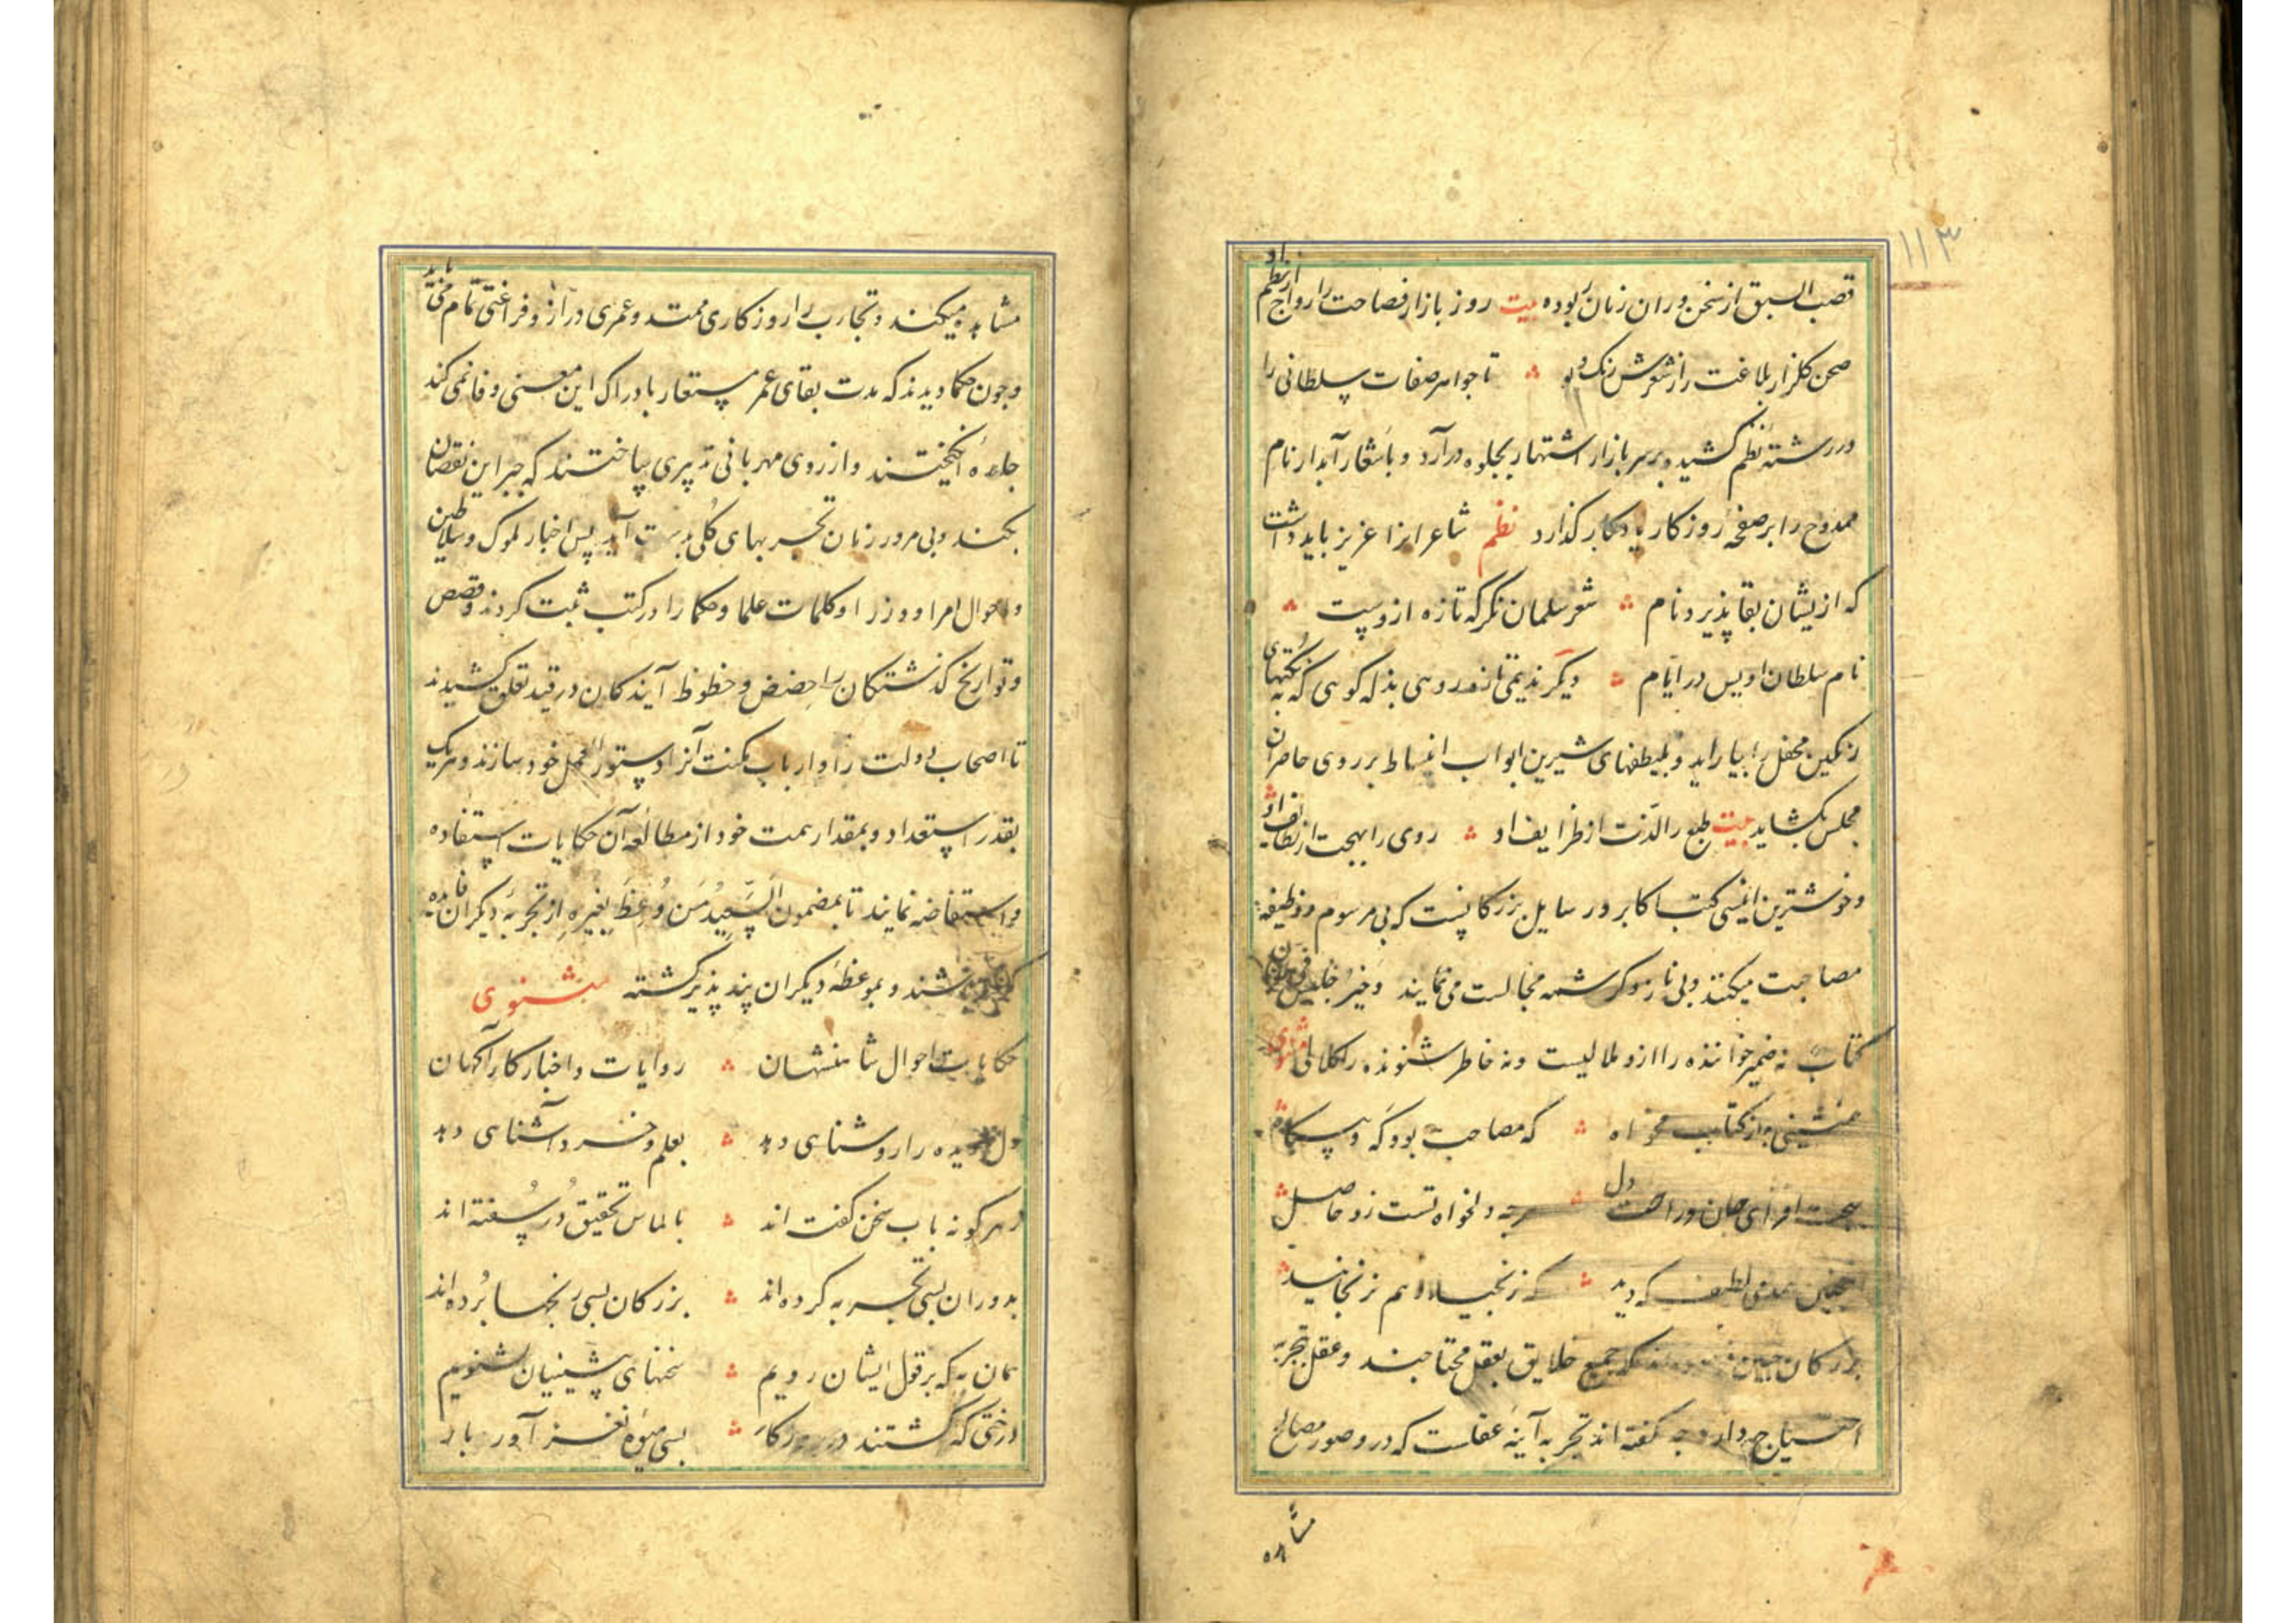 ۱۱۳
قصب السبق از سخن وران زمان ربوده بیت روز بازار فصاحت را رواج از نظم او
صحن کلزار بلاغت را ز شعرش رنک و بو تا جواهر صفات سلطانی را
در رشته نظم کشیده بر سر بازار اشتهار بجلوه درآرد و باشعار آبدار نام
ممدوح را بر صفحه روزکار یادکار کذارد نظم شاعرانرا عزیز باید داشت
که از یشان بقا پذیرد نام شعر سلمان نکر که تازه ازوست
نام سلطان اویس در ایام دیکر ندیمی تازه روی بذله کوی که به نکتهای
رنکین محفل را بیاراید و بلطیفهای شیرین ابواب انبساط بر روی حاضران
مجلس بکشاید بیت طبع را لذت از ظرایف او روی را بهجت از لطایف او
و خوشترین انیسی کتب اکابر و رسایل بزرکانیست که بی مرسوم و وظیفه
مصاحبت میکنند و بی ناز و کرشمه مجالست می نمایند وَخیرُ جلیس فی الزمان
کتابٌ نه ضمیر خواننده را ازو ملالیست و نه خاطر شنونده را کلالی مثنوی
همنشینی به از کتاب مخواه که مصاحب بود که و بیکاه
صحت افزای جان و راحت دل هرچه دلخواه تست زو حاصل
اینچنین همدمی لطیف که دید که نرنجید و هم نرنجانید
بزرکان چنین فرموده اند که جمیع خلایق بعقل محتاجند و عقل بتجربه
احتیاج دارد چه کفته اند تجربه آینه عقلست که در و صور مصالح
مشاهده
مشاهده میکنند و تجارب را روزکاری ممتد و عمری دراز و فراغتی تمام می باید
و چون حکما دیدند که مدت بقای عمر مستعار بادراک این معنی وفا نمی کند
جاره انکیختند و از روی مهربانی تدبیری ساختند که جبر این نقصان
بکند و بی مرور زمان تجربهای کلی بدست آید پس اخبار ملوک و سلاطین
و احوال امرا و وزرا و کلمات علما و حکما را در کتب ثبت کردند و قصص
و تواریخ کذشتکان را حضض و حظوظ آیندکان در قید تعلق کشیدند
تا اصحاب دولت را و ارباب مکنت آنرا دستور العمل خود سازند و هر یک
بقدر استعداد و بمقدار همت خود از مطالعه آن حکایات استفاده
و استفاضه نمایند تا بمضمون السَّعِیدُ مَن وُعِظَ بِغَیرِهِ از تجربه دیکران فایده
باشند و بموعظه دیکران پند پذیر کشته مثنوی
حکایات احوال شاهنشهان روایات و اخبار کارآکهان
دل و دیده را روشنایی دهد بعلم و خرد آشنایی دهد
ز هر کونه باب سخن کفته اند بالماس تحقیق دُر سُفته اند
بدوران بسی تجربه کرده اند بزرکان بسی رنجها بُرده اند
همان به که بر قول ایشان رویم سخنهای پیشینیان بشنویم
درختی که کشتند در روزکار بسی میوه نغز آورد بار